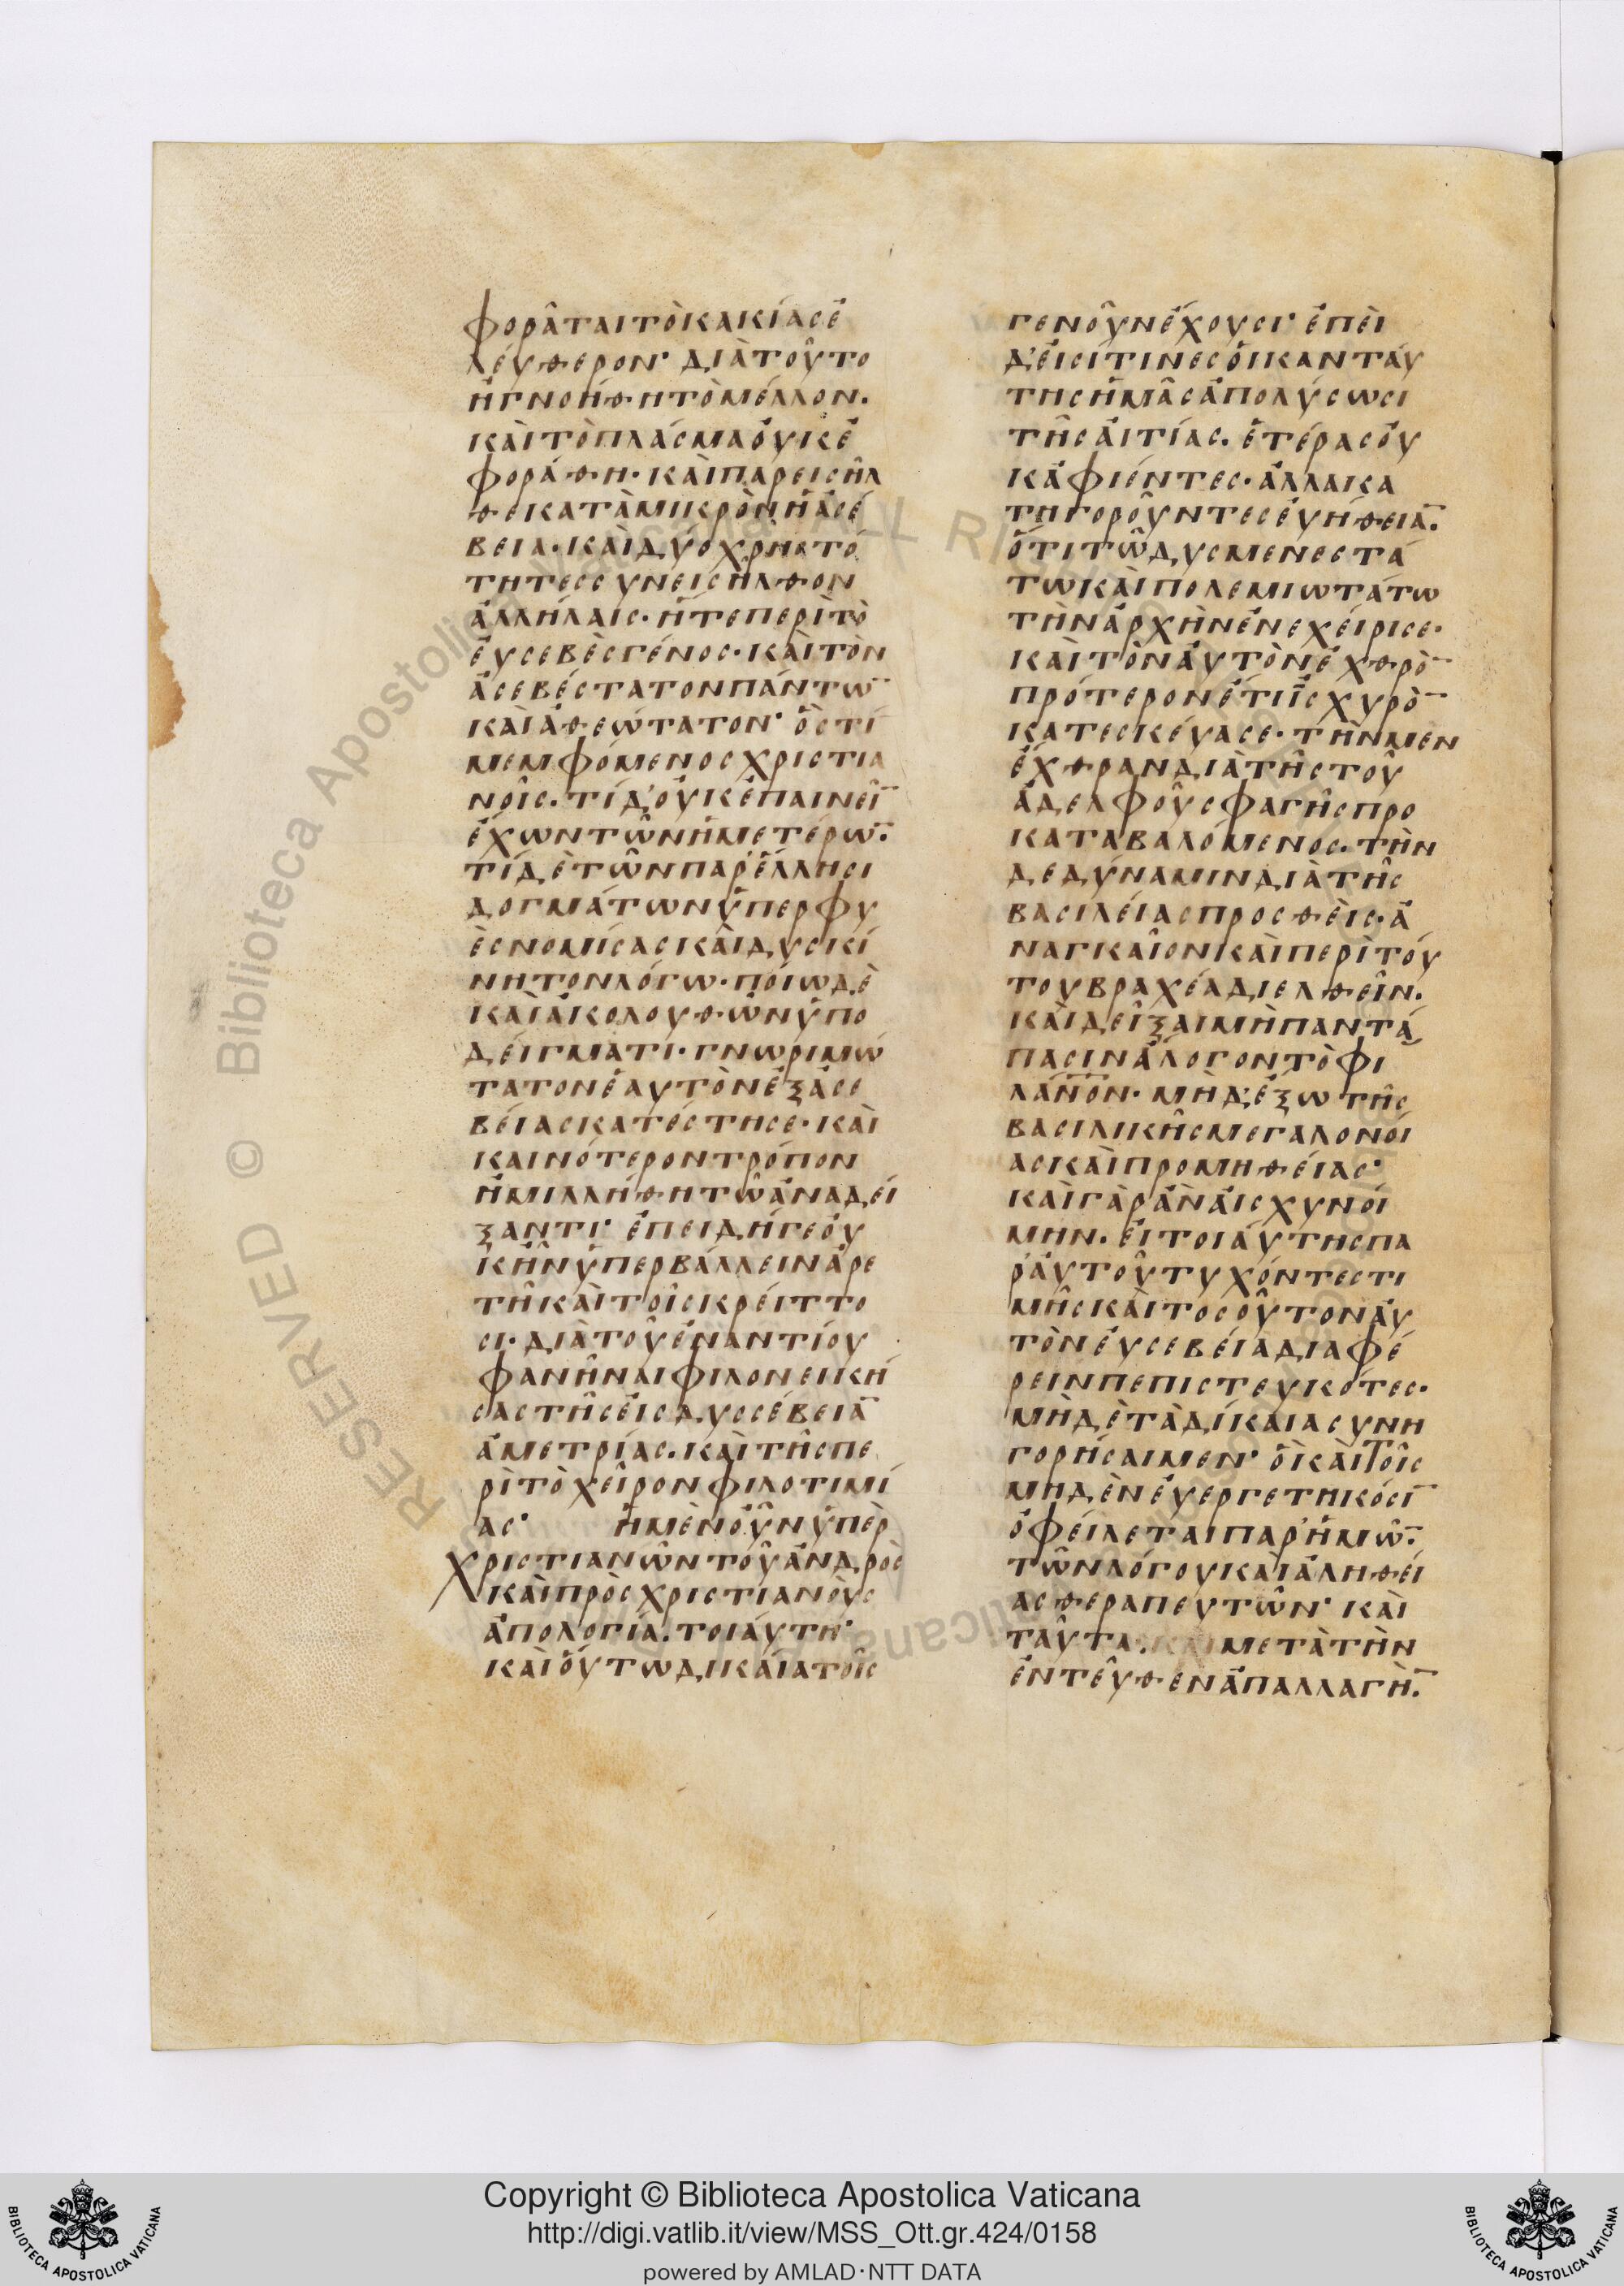 φορᾶται τὸ κακίας ἐ
λεύθερον· διὰ τοῦτο
ἠγνοήθη τὸ μέλλον.
καὶ τὸ πλάσμα οὐκ ἐ
φοράθη· καὶ παρεισῆλ
θε κατὰ μικρὸν ἡ ἀσέ
βεια· καὶ δύο χρηστό
τητες συνεισῆλθον
ἀλλήλαις· ἥτε περὶ τὸ
εὐσεβὲς γένος· καὶ τὸν
ἀσεβέστατον πάντω̅
καὶ ἀθεώτατον· ὃς τί
μεμφόμενος χριστια
νοῖς. τί δ' οὐκ ἐπαινεῖ̅
ἔχων τῶν ἡμετέρω̅.
τί δὲ τῶν παρ' ἕλλησι
δογμάτων ὑπερφυ
ὲς νομίσας καὶ δυσκί
νητον λόγω· ποίω δὲ
καὶ ἀκολουθῶν ὑπο
δείγματι· γνωριμώ
τατον ἑαυτὸν ἐξ ἀσε
βείας κατέστησε· καὶ
καινότερον τρόπον
ἡμιλλήθη τῶ ἀναδεί
ξαντι· ἐπειδήγε οὐ
κ ἦν ὑπερβάλλειν ἀρε
τῆ καὶ τοῖς κρείττο
σι· διὰ τοῦ ἐναντίου
φανῆναι φιλονεικῆ
σας τῆς εἰς δυσσέβεια̅
ἀμετρίας. καὶ τῆς πε
ρὶ τὸ χεῖρον φιλοτιμί
ας· ἡ μὲν οὖν ὑπὲρ
χριστιανῶν τοῦ ἀνδρὸς
καὶ πρὸς χριστιανοὺς
ἀπολογία. τοιαύτη·
καὶ οὕτω δικαία τοῖς
γε νοῦν ἔχουσι· ἐπεὶ
δ' εἰσί τινες οἳ κἂν ταύ
της ἡμᾶς ἀπολύσωσι
τῆς αἰτίας. ἑτέρας οὐ
κ ἀφιέντες· ἀλλα κα
τηγοροῦντες εὐήθεια̅.
ὅτι τῶ δυσμενεστά
τω καὶ πολεμιωτάτω
τὴν ἀρχὴν ἐνεχείρισε·
καὶ τὸν αὐτὸν ἐχθρὸ̅
πρότερον ἔτι ἰσχυρὸ̅
κατεσκεύασε· τὴν μὲν
ἔχθραν διὰ τῆς τοῦ
ἀδελφοῦ σφαγῆς προ
καταβαλόμενος. τὴν
δε δύναμιν διὰ τῆς
βασιλείας προσθεὶς· ἀ
ναγκαῖον καὶ περὶ τού
του βραχέα διελθεῖν.
καὶ δεῖξαι μὴ παντά
πασιν ἄλογον τὸ φι
λάν̅ον· μὴδ' ἔξω τῆς
βασιλικῆς μεγαλονοί
ας καὶ προμηθείας·
καὶ γὰρ ἂν αἰσχυνοί
μην. εἰ τοιαύτης πα
ρ' αὐτοῦ τυχόντες τι
μῆς καὶ τοσοῦτον αὐ
τὸν εὐσεβεία διαφέ
ρειν πεπιστευκότες.
μὴδὲ τὰ δίκαια συνη
γορήσαιμεν· ὃ καὶ τοῖς
μηδὲν εὐεργετηκόσι̅
ὀφείλεται παρ' ἡμῶ̅.
τῶν λόγου καὶ ἀληθεί
ας θεραπευτῶν· καὶ
ταῦτα. καὶ μετὰ τὴν
ἐντεῦθεν ἀπαλλαγὴ̅.
Copyright © Biblioteca Apostolica Vaticana
http://digi.vatlib.it/view/MSS_Ott.gr.424/0158
powered by AMLAD·NTT DATA